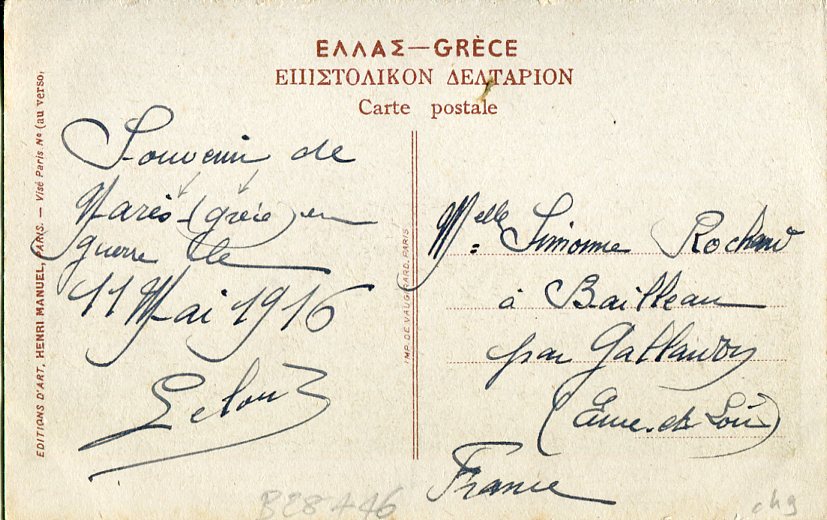 ΕΛΛΑΣ — GRÈCE
ΕΠΙΣΤΟΛΙΚΟΝ ΔΕΛΤΑΡΙΟΝ
Carte postale
EDITIONS D'ART, HENRI MANUEL, PARIS. — Visé Paris No (au verso.
Souvenir de
(grèce) en
guerre le
11 Mai 1916
IMP. DE VAUGIRARD, PARIS
Melle Simonne
à Bailleau
par Gallardon
(Eure-et-Loir)
France
B28A46